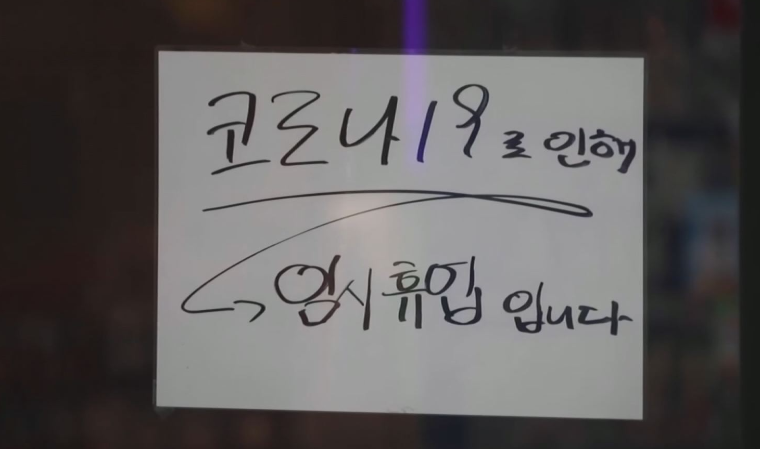 코로나19로 인해
임시휴업 입니다